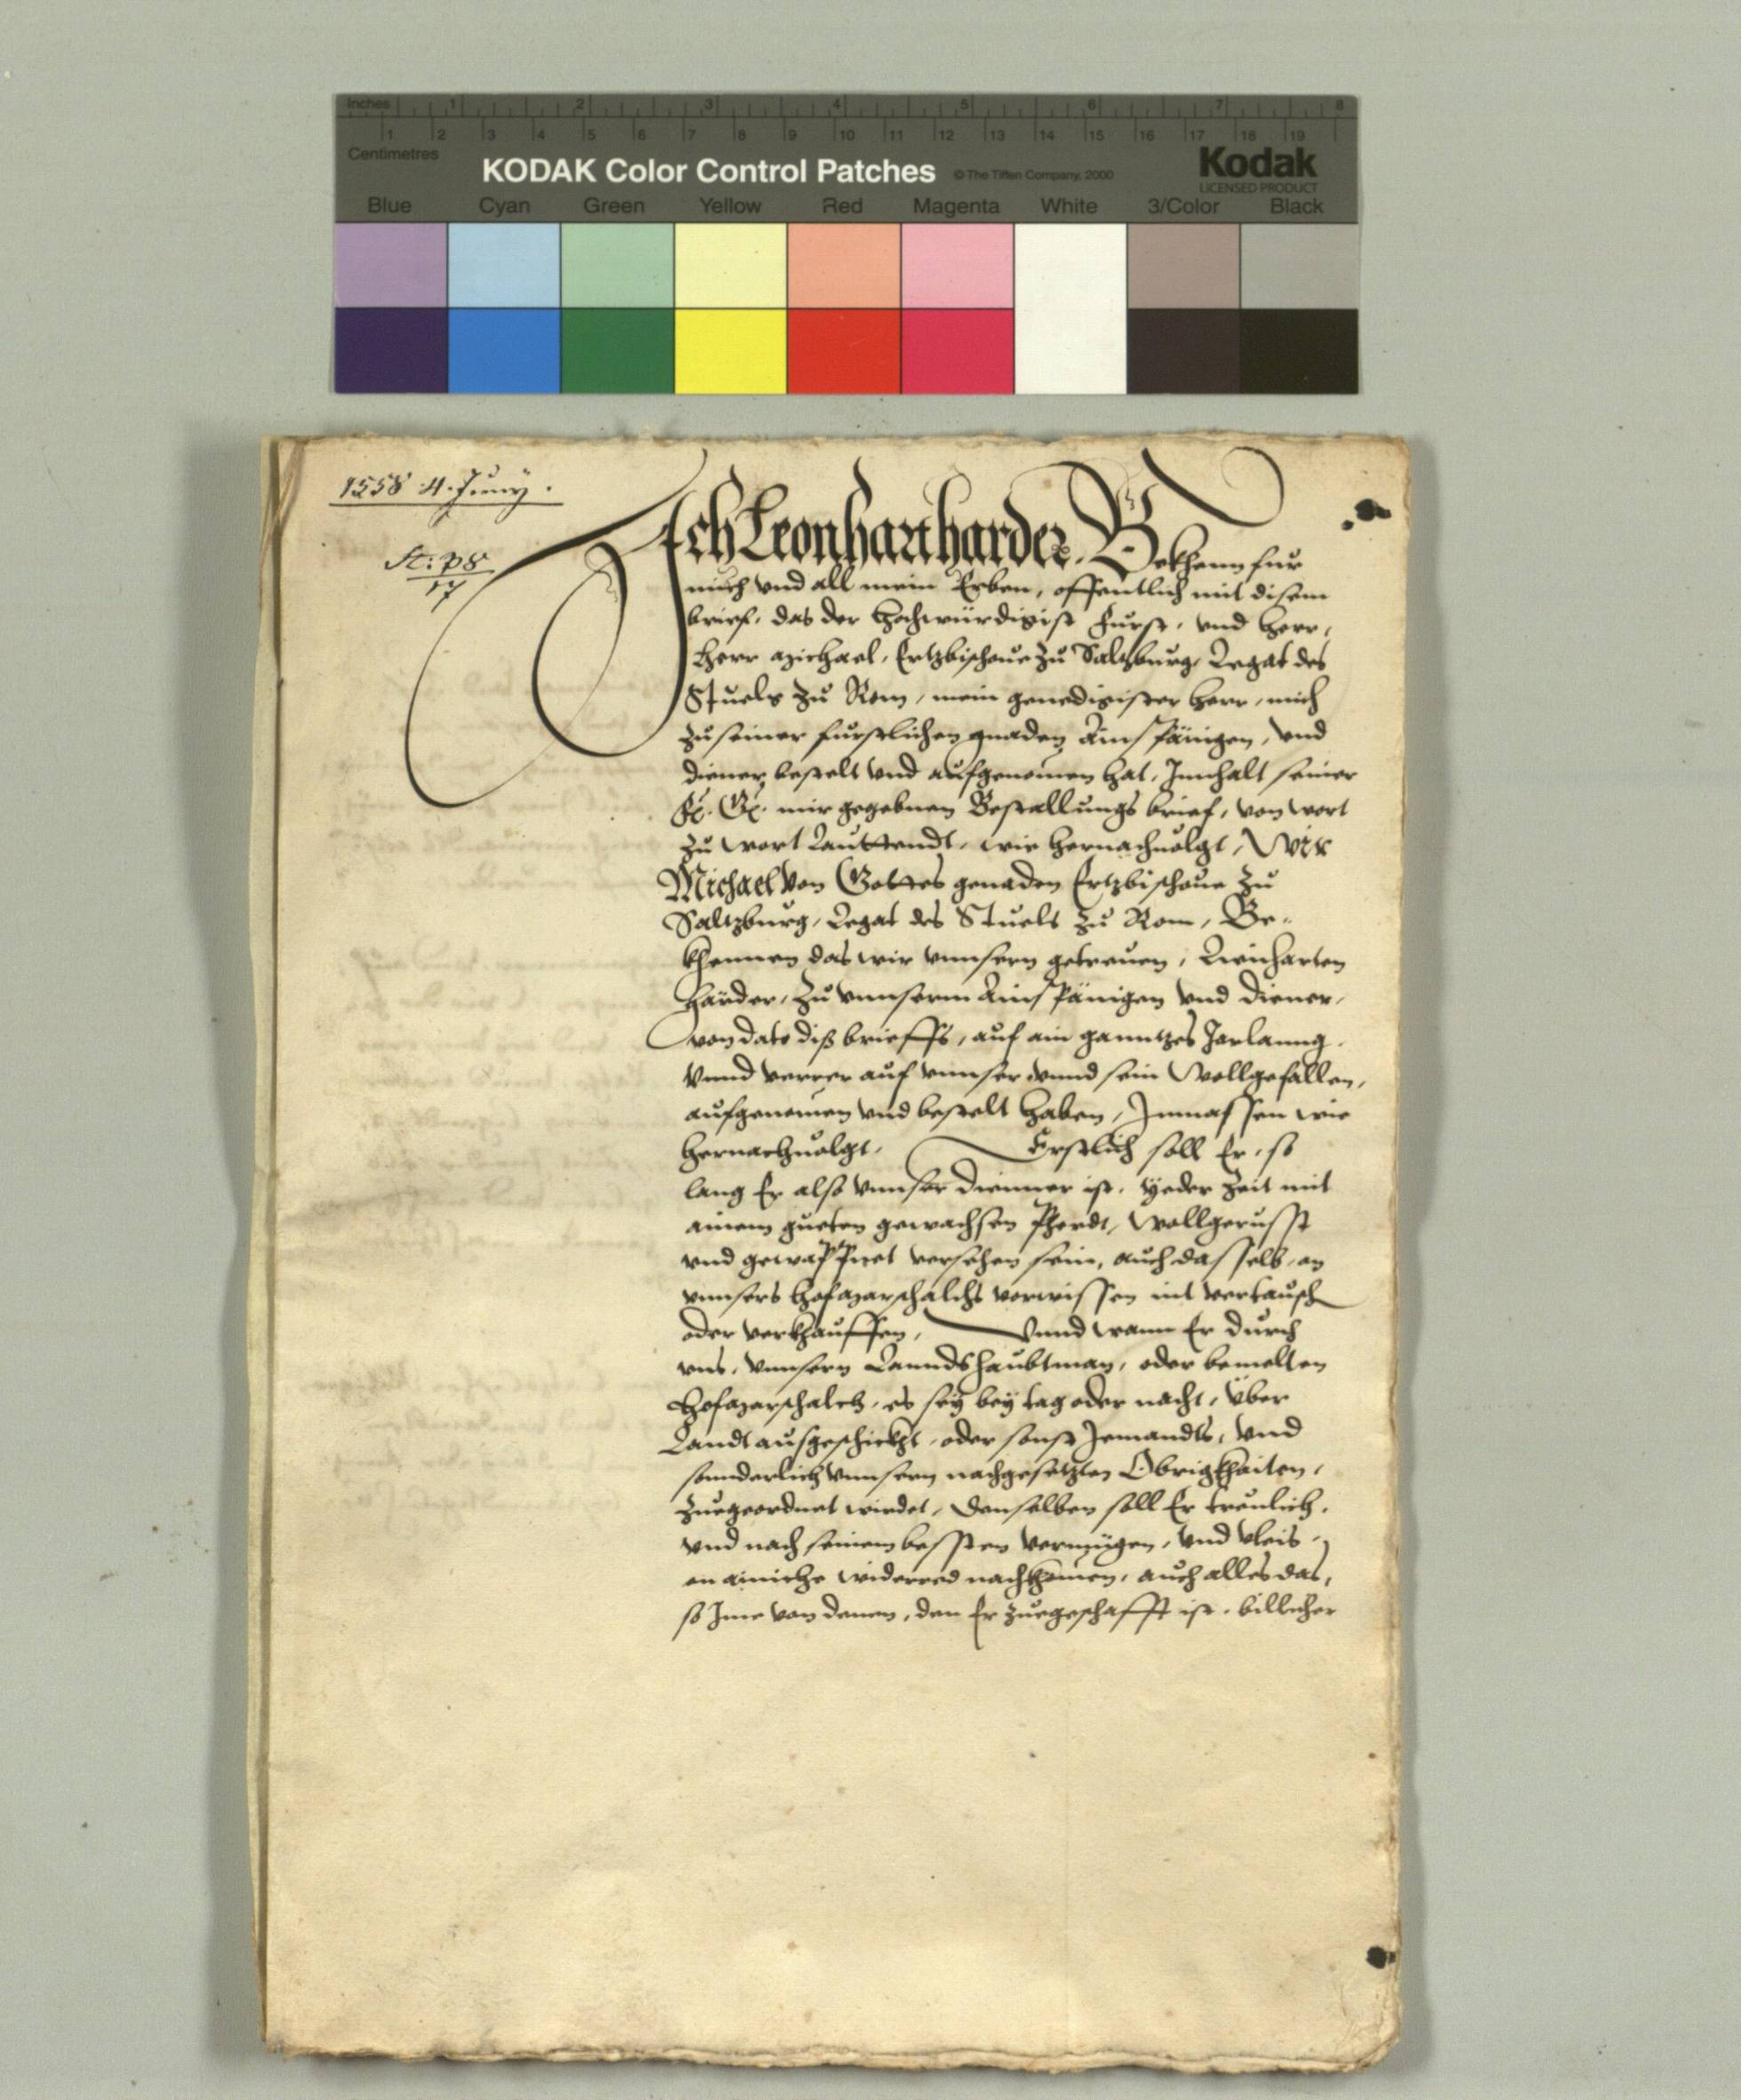 Inches 1 2 3 4 5 6 7 8
1 2 3 4 5 6 7 8 9 10 11 12 13 14 15 16 17 18 19
Centimetres
KODAK Color Control Patches © The Tiffen Company, 2000 Kodak
LICENSED PRODUCT
Blue Cyan Green Yellow Red Magenta White 3/Color Black
1558 4. Juny.
17
Ich Leonhart harder. Bekhenn fur
mich vnd all mein Erben, offentlich mit disem
brief, das der hochwürdigist Furst, vnd herr,
herr Michael, Ertzbischoue zu Saltzburg, Legat des
Stuels zu Rom, mein genedigister herr, mich
zu seiner furstlichen gnaden Ainspänigen, vnd
diener bestelt vnd aufgenomen hat, Innhalt seiner
F. G. mir gegebnen Bestallungs brief, von wort
zu wort Lauttendt, wie hernachuolgt, Wir
Michael von Gottes genaden Ertzbischoue zu
Saltzburg, Legat des Stuels zu Rom, Be-
khennen das wir vnnsern getreuen, Leinharten
Härder, zu vnnserm Ainspänigen vnd diener,
von dato diß brieffs, auf ain ganntzes Jarlanng.
Vnnd verrer auf vnnser vnnd sein Wolgefallen,
aufgenomen vnd bestelt haben, Inmassen wie
hernachuolgt. Erstlich soll Er, so
lang Er also vnnser dienner ist, yeder zeit mit
ainem gueten gewachsen Pferdt, Wollgerusst
vnd gewappnet versehen sein, auch dasselb, on
vnnsers hofmarschalchs vorwissen nit vertausch
oder verkhauffen, Vnnd wann Er durch
vns, vnnsern Lanndshaubtman, oder bemelten
Hofmarschalch, es sey bey tag oder nacht, über
Landt ausgeschickht, oder sonst Jemandts, vnd
sonnderlich vnnsern nachgesetzten Obrigkhaiten,
zuegeordnet wirdet, denselben soll Er treulich,
vnd nach seinem bessten vermügen, vnd vleis,
on ainiche widerred nachkhomen, auch alles das,
so Ime von denen, den Er zuegeschafft ist, billicher